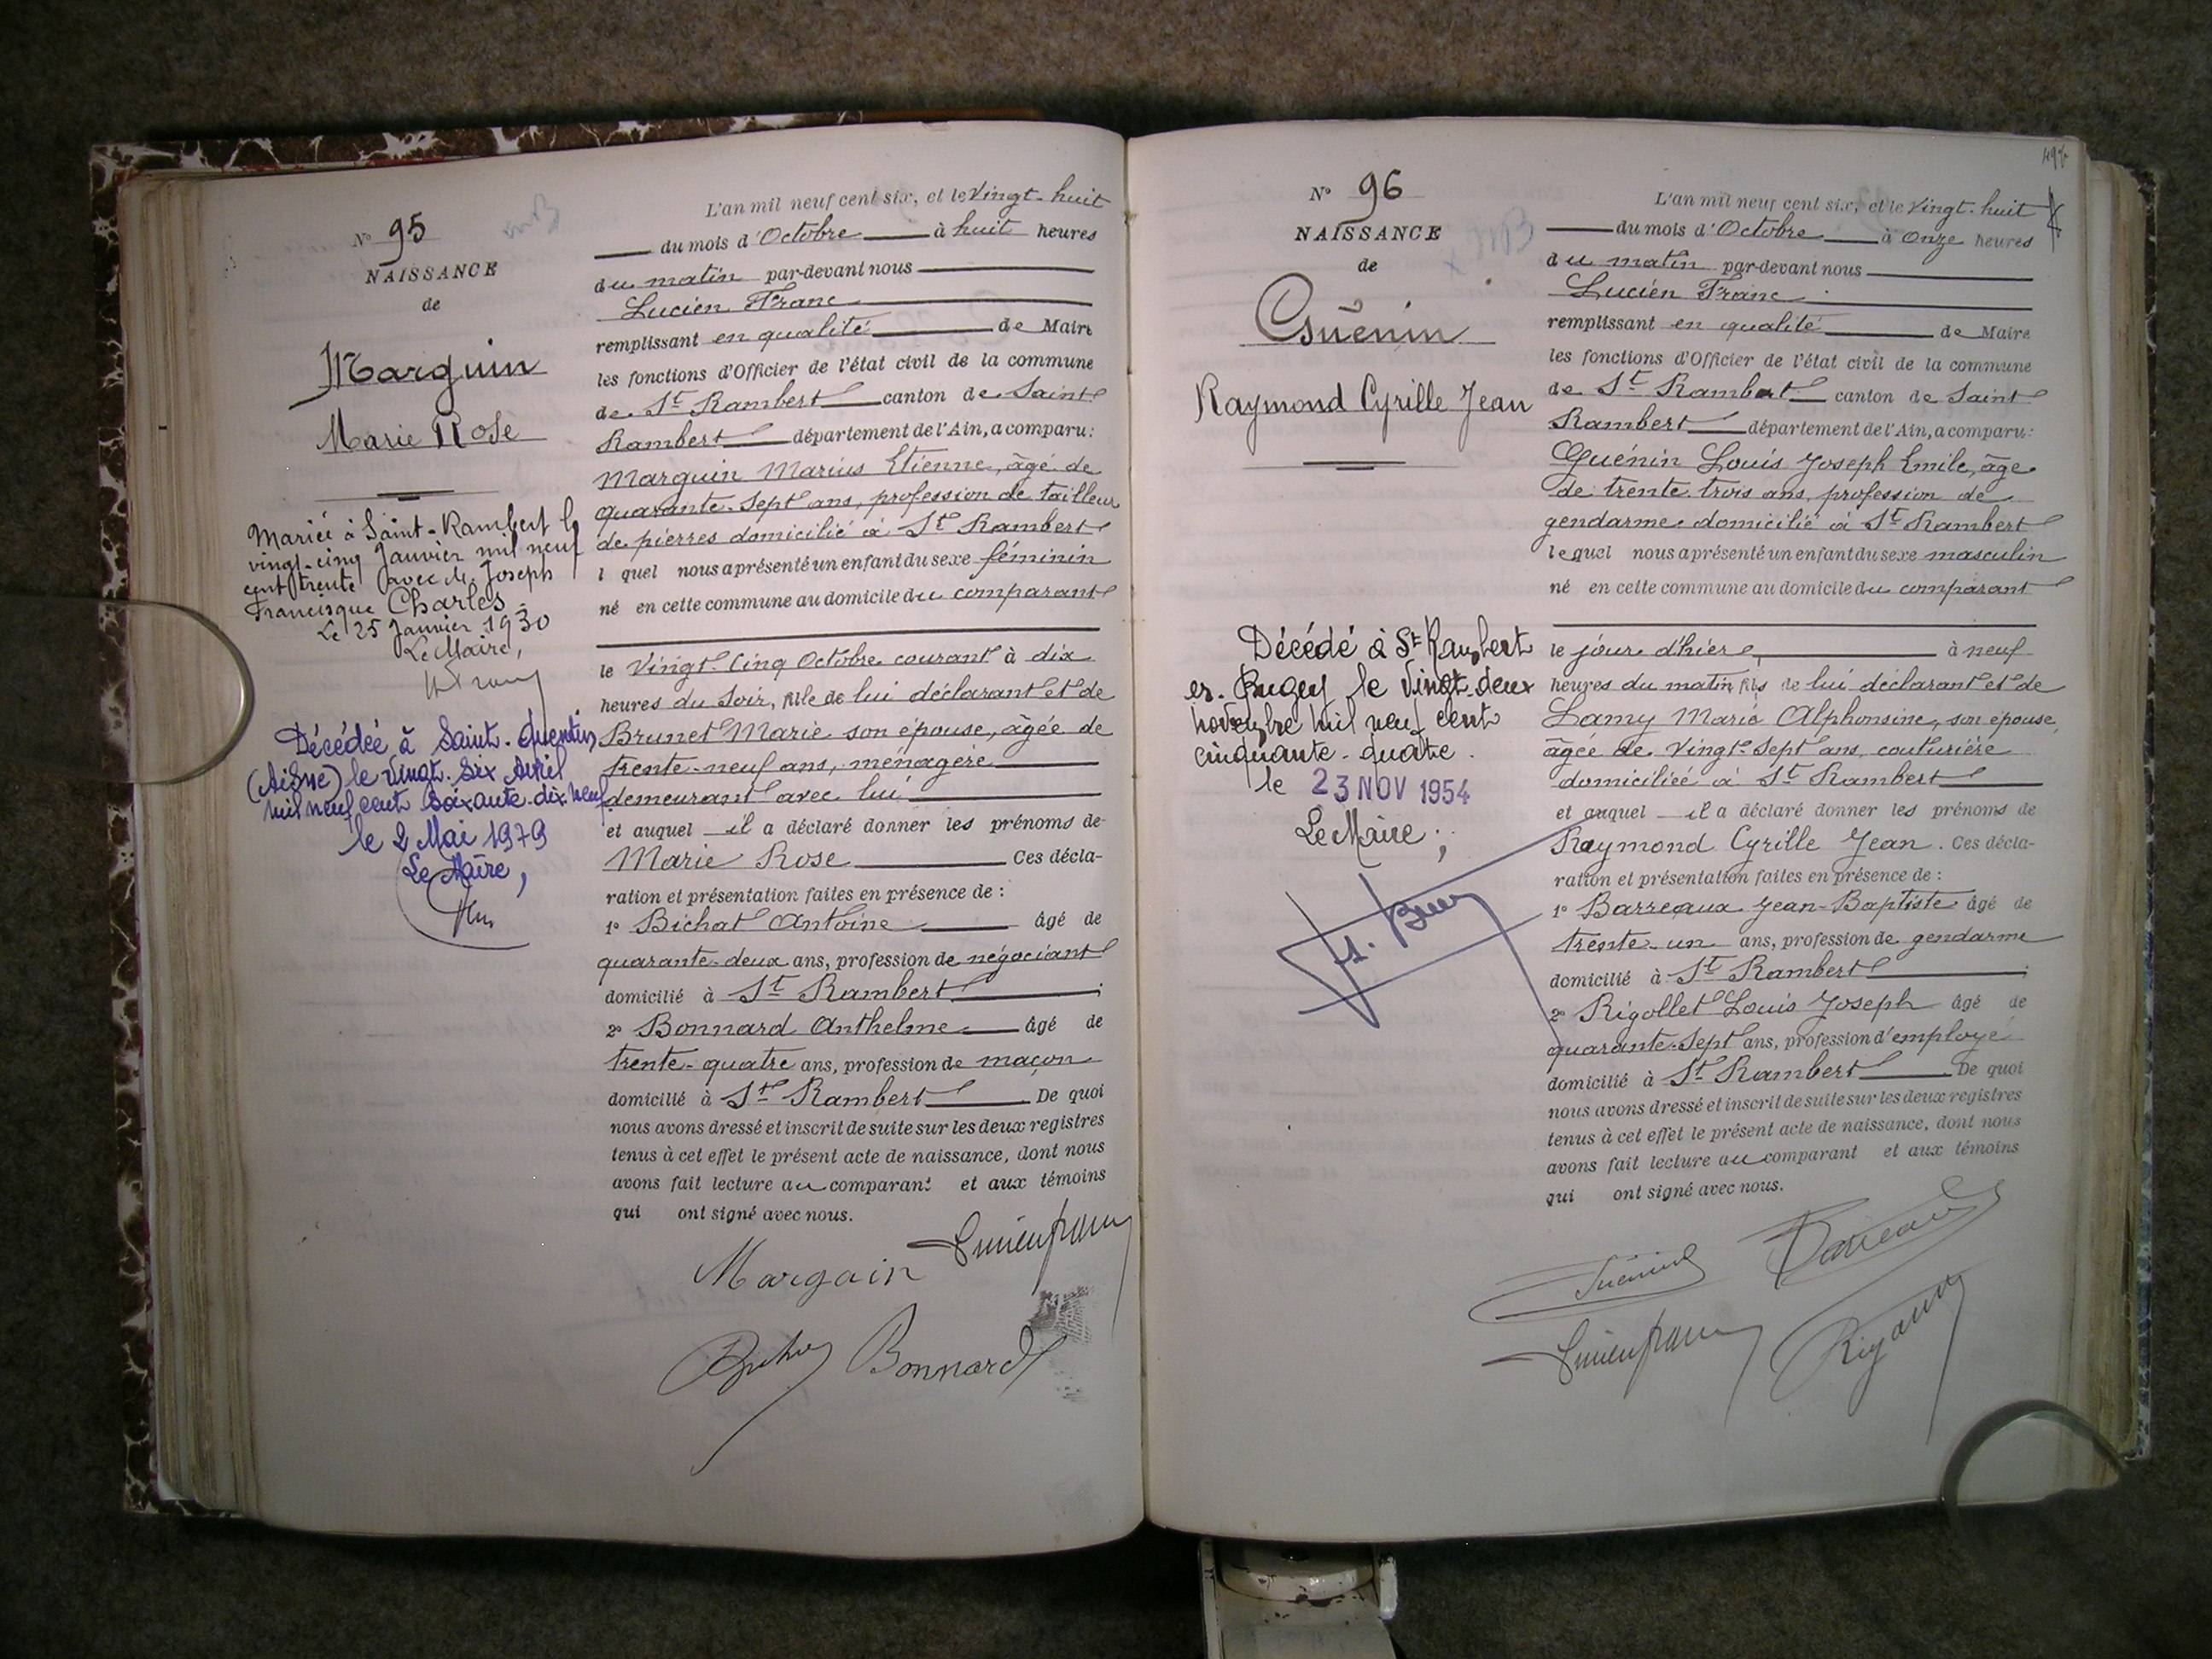 N° 95
NAISSANCE
de
Marguin
Marie Rose
Mariée à Saint-Rambert le
vingt-cinq Janvier mil neuf
cent trente avec M. Joseph
Francisque Charles.
Le 25 Janvier 1930
Le Maire,
Décédée à Saint-Quentin
(Aisne) le vingt-six Avril
mil neuf cent soixante-dix neuf
le 2 Mai 1979
Le Maire,
L'an mil neuf cent six, et le Vingt-huit
du mois d'Octobre à huit heures
du matin par-devant nous
Lucien Franc
remplissant en qualité de Maire
les fonctions d'Officier de l'état civil de la commune
de St Rambert canton de Saint
Rambert département de l'Ain, a comparu:
Marguin Marius Etienne, âgé de
quarante-sept ans, profession de tailleur
de pierres domicilié à St Rambert
l quel nous a présenté un enfant du sexe féminin
né en cette commune au domicile du comparant
le Vingt-Cinq Octobre courant à dix
heures du soir, fille de lui déclarant et de
Brunet Marie son épouse, âgée de
trente-neuf ans, ménagère
demeurant avec lui
et auquel il a déclaré donner les prénoms de
Marie Rose Ces décla-
ration et présentation faites en présence de :
1° Bichat Antoine âgé de
quarante-deux ans, profession de négociant
domicilié à St Rambert ;
2° Bonnard Anthelme âgé de
trente-quatre ans, profession de maçon
domicilié à St Rambert De quoi
nous avons dressé et inscrit de suite sur les deux registres
tenus à cet effet le présent acte de naissance, dont nous
avons fait lecture au comparant et aux témoins
qui ont signé avec nous.
Margain Lucien Franc
Bonnard
N° 96
NAISSANCE
de
Guénin
Raymond Cyrille Jean
Décédé à St Rambert
en-Bugey le vingt-deux
novembre mil neuf cent
cinquante-quatre.
le 23 NOV 1954
Le Maire ;
L'an mil neuf cent six, et le Vingt-huit
du mois d'Octobre à Onze heures
du matin par-devant nous
Lucien Franc
remplissant en qualité de Maire
les fonctions d'Officier de l'état civil de la commune
de St Rambert canton de Saint
Rambert département de l'Ain, a comparu:
Guénin Louis Joseph Emile, âge
de trente-trois ans, profession de
gendarme domicilié à St Rambert
lequel nous a présenté un enfant du sexe masculin
né en cette commune au domicile du comparant
le jour d'hier, à neuf
heures du matin, fils de lui déclarant et de
Lamy Marie Alphonsine, son épouse,
âgée de Vingt-sept ans, couturière
domiciliée à St Rambert
et auquel il a déclaré donner les prénoms de
Raymond Cyrille Jean. Ces décla-
ration et présentation faites en présence de :
1° Barreaux Jean-Baptiste âgé de
trente-un ans, profession de gendarme
domicilié à St Rambert ;
2° Rigollet Louis Joseph âgé de
quarante-sept ans, profession d'employé
domicilié à St Rambert De quoi
nous avons dressé et inscrit de suite sur les deux registres
tenus à cet effet le présent acte de naissance, dont nous
avons fait lecture au comparant et aux témoins
qui ont signé avec nous.
Guénin Barreaux
Lucien Franc